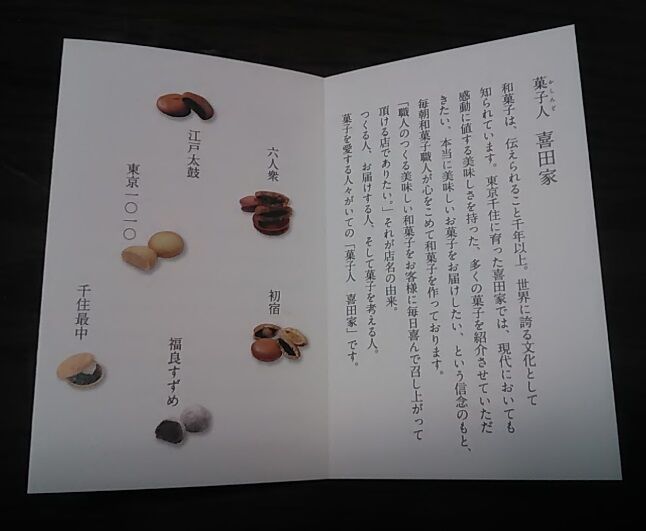 菓子人 喜田家
かしんど
和菓子は、伝えられること千年以上。世界に誇る文化として
知られています。東京千住に育った喜田家では、現代においても
感動に値する美味しさを持った、多くの菓子を紹介させていただ
きたい、本当に美味しいお菓子をお届けしたい、という信念のもと、
毎朝和菓子職人が心をこめて和菓子を作っております。
「職人のつくる美味しい和菓子をお客様に毎日喜んで召し上がって
頂ける店でありたい。」それが店名の由来。
つくる人、お届けする人、そして菓子を考える人。
菓子を愛する人々がいての「菓子人 喜田家」です。
六人衆
初宿
江戸太鼓
福良すずめ
東京一〇一〇
千住最中